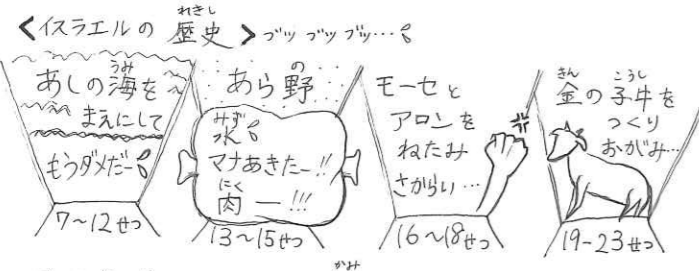 <イスラエルの歴史>ブツブツブツ…
れきし
あしの海を
うみ
まえにして
もうダメだー
7〜12せつ
あら野
の
みず
水
マナあきたー!!
にく
肉ー!!!
13〜15せつ
モーセと
アロンを
ねたみ
さからい…
16〜18せつ
きん こうし
金の子牛を
つくり
おがみ…
19-23せつ
かみ